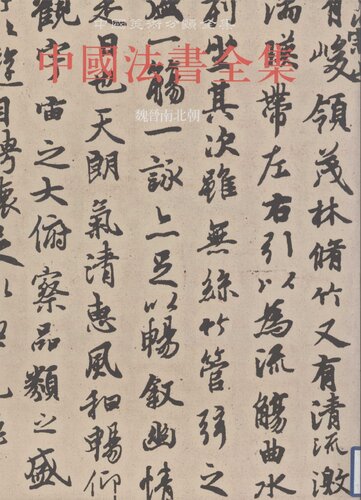 中國美術分類全集
中國法書全集
魏晉南北朝
有峻領茂林脩竹又有清流激
湍暎帶左右引以為流觴曲水
列坐其次雖無絲竹管弦之
盛一觴一詠亦足以暢敘幽情
是日也天朗氣清惠風和暢仰
觀宇宙之大俯察品類之盛
遊目騁懷足以